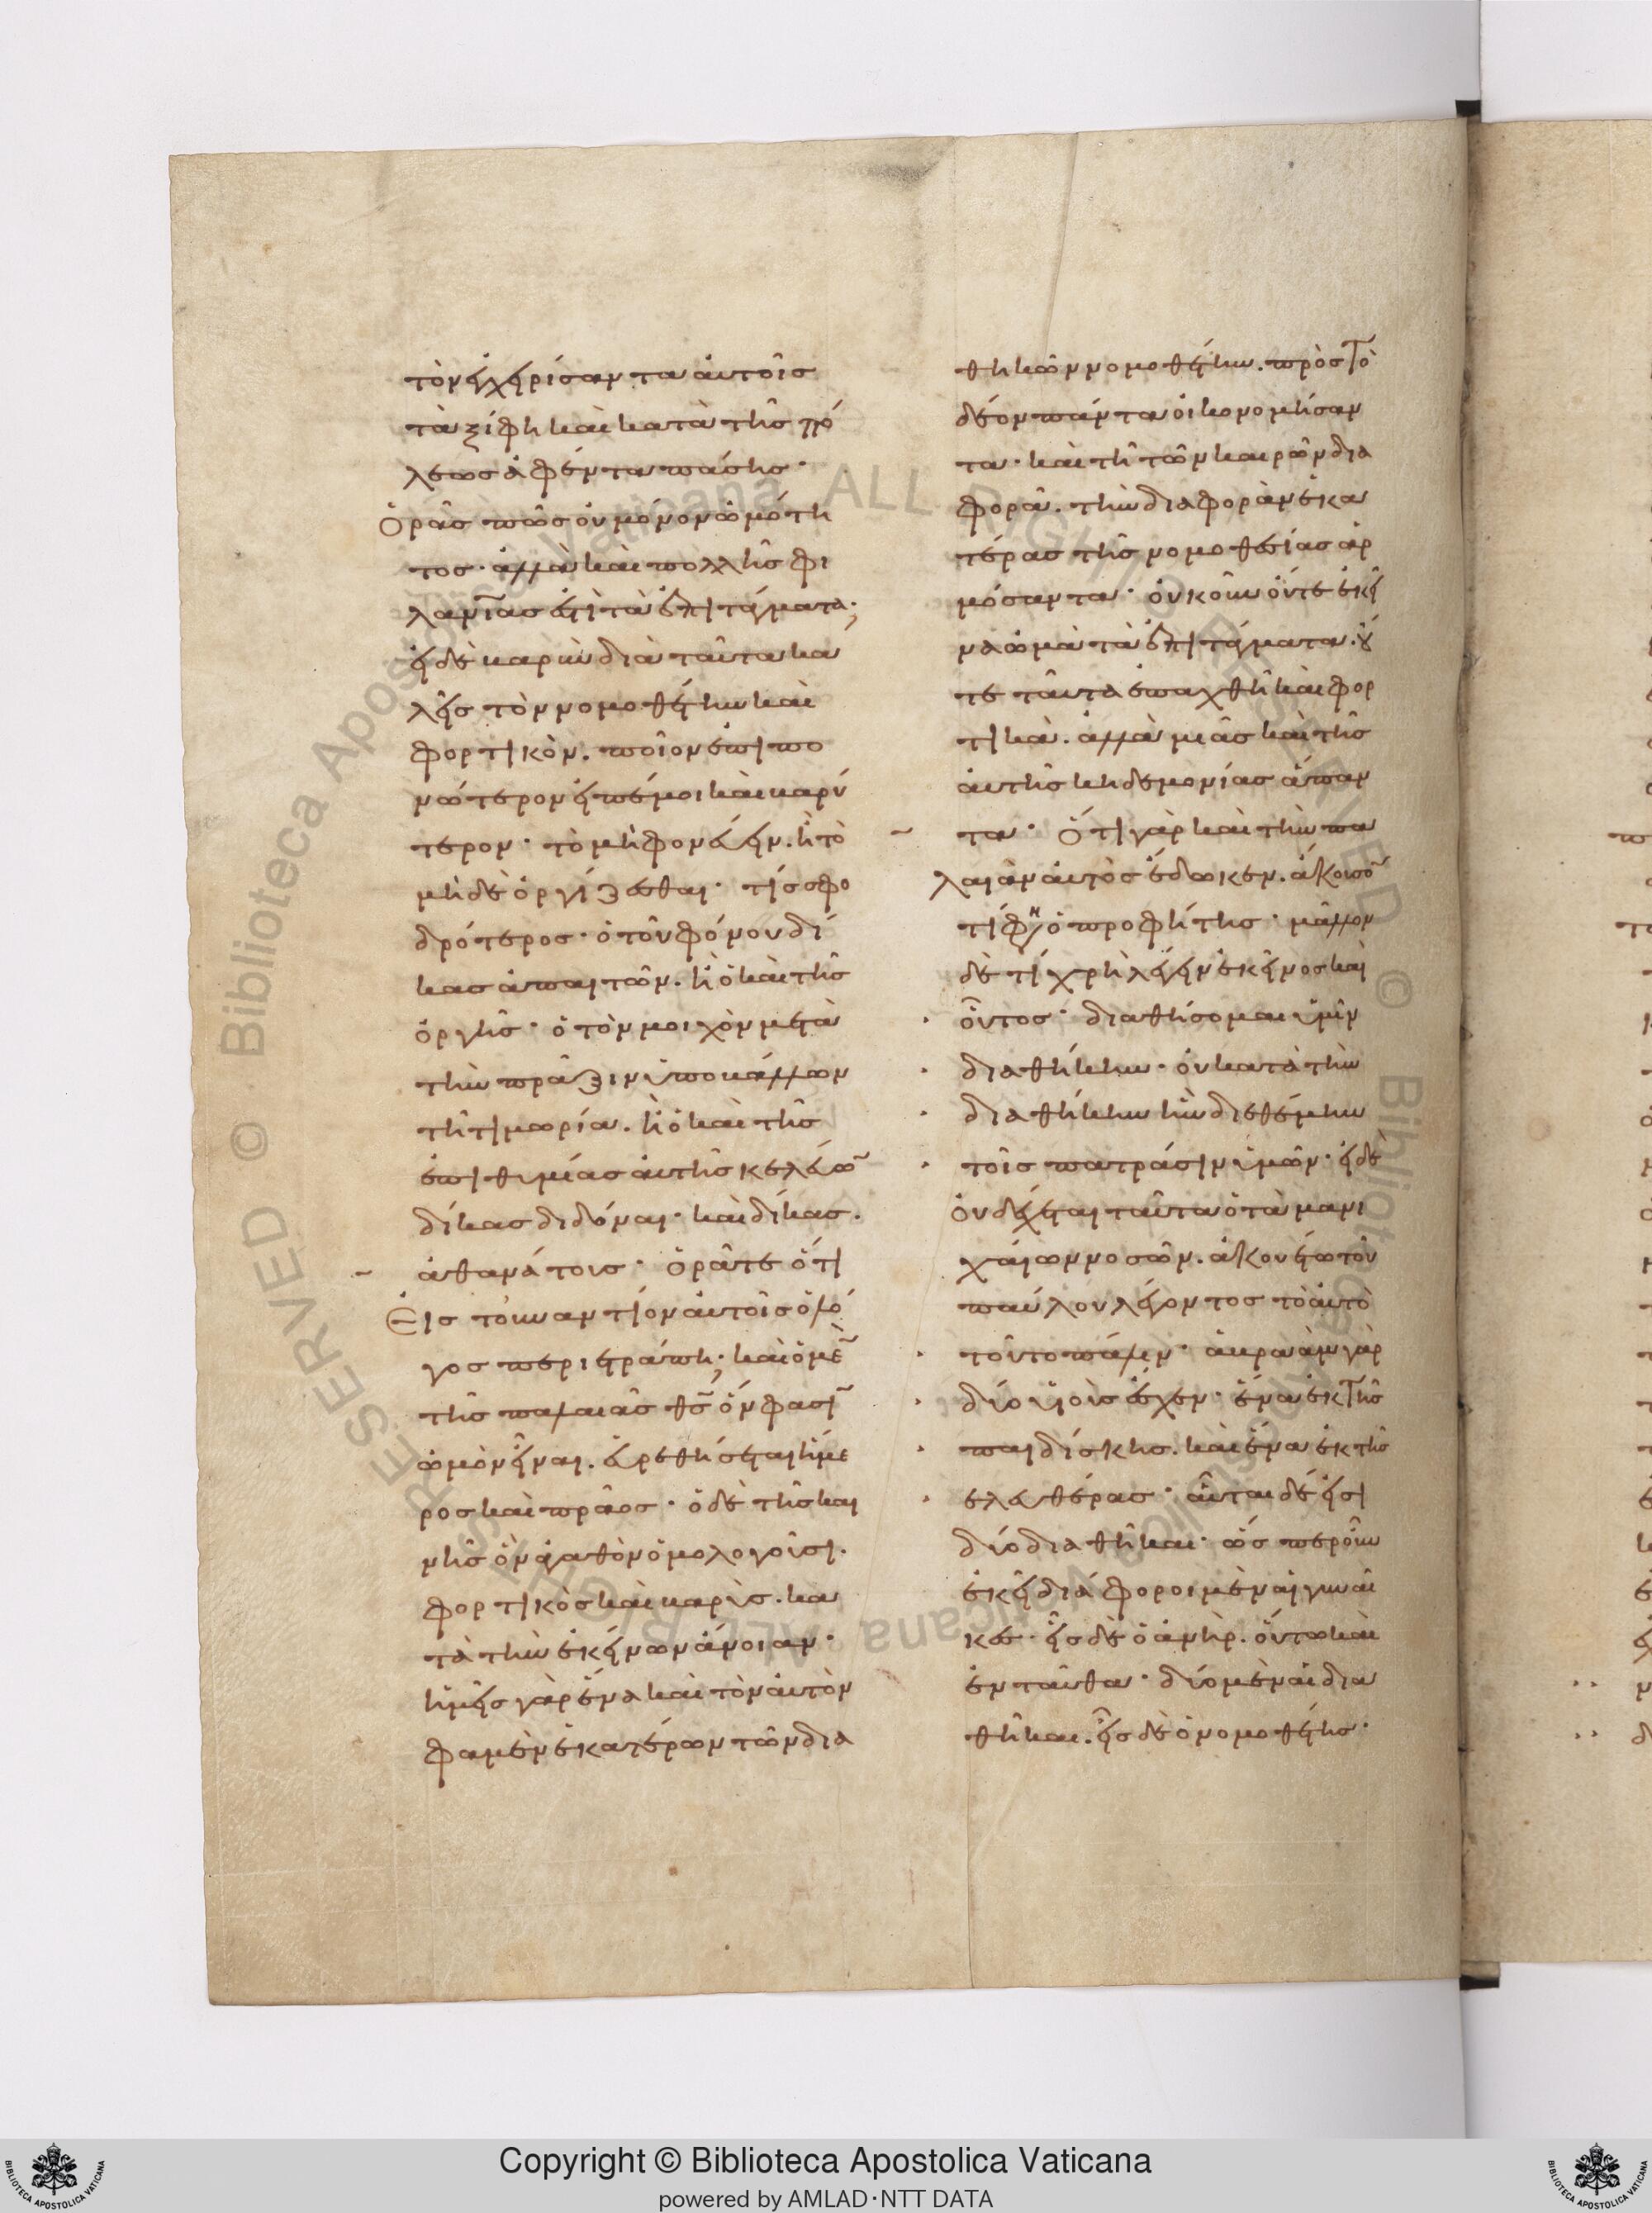 τὸν ἐγχειρίσαντα αὐτοῖς
τὰ ξίφη καὶ κατὰ τῆς πό
λεως ἀφέντα πάσης·
Ὁρᾶς πῶς οὐ μόνον ὠμότη
τος· ἀλλὰ καὶ πολλῆς φι
λανίας ἐστὶ τὰ ἐπιτάγματα·
εἰ δὲ βαρὺν διὰ ταῦτα κα
λεῖς τὸν νομοθέτην καὶ
φορτικὸν. ποῖον ἐπιπο
νώτερον εἰπέ μοι καὶ βαρύ
τερον· τὸ μὴ φονεύειν. ἢ τὸ
μὴ δὲ ὀργίζεσθαι· τίς σφο
δρότερος· ὁ τοῦ φόνου δί
κας ἀπαιτῶν. ἢ ὁ καὶ τῆς
ὀργῆς· ὁ τὸν μοιχὸν μετὰ
τὴν πρᾶξιν ὑποβάλλων
τῆ τιμωρία. ἢ ὁ καὶ τῆς
ἐπιθυμίας αὐτῆς κελεύω
δίκας διδόναι· καὶ δίκας.
ἀθανάτους· ὁρᾶτε ὅτι
Εἰς τοὐναντίον αὐτοῖς ὁ λό
γος περιετράπη· καὶ ὁ μὲ
τῆς παλαιᾶς θς ὅν φασι
ὠμὸν εἶναι. εὑρεθήσεται ἥμε
ρος καὶ πρᾶος· ὁ δὲ τῆς και
νῆς ὃν ἀγαθὸν ὁμολογοῦσι.
φορτικὸς καὶ βαρὺς. κα
τὰ τὴν ἐκείνων ἄνοιαν·
ἡμεῖς γὰρ ἕνα καὶ τὸν αὐτὸν
φαμὲν ἑκατέρων τῶν δια
θηκῶν νομοθέτην. πρὸς τὸ
δέον πάντα οἰκονομήσαν
τα· καὶ τῆ τῶν καιρῶν δια
φορᾶ. τὴν διαφορὰν ἑκα
τέρας τῆς νομοθεσίας ἁρ
μόσαντα· οὐκοῦν οὔτε ἐκεῖ
να ὠμὰ τὰ ἐπιτάγματα. οὔ
τε ταῦτα ἐπαχθῆ καὶ φορ
τικὰ. ἀλλὰ μιᾶς καὶ τῆς
αὐτῆς κηδεμονίας ἅπαν
τα· Ὅτι γὰρ καὶ τὴν πα
λαιὰν αὐτὸς ἔδωκεν. ἄκουσο
τί φη ὁ προφήτης· μᾶλλον
δὲ τί χρὴ λέγειν ἐκεῖνος καὶ
οὗτος· διαθήσομαι ὑμῖν
διαθήκην· οὐ κατὰ τὴν
διαθήκην ἣν διεθέμην
τοῖς πατράσιν ὑμῶν· εἰ δὲ
οὐ δέχεται ταῦτα ὁ τὰ μανι
χαίων νοσῶν. ἀκουέτω τοῦ
παύλου λέγοντος τὸ αὐτὸ
τοῦτο πάλιν· ἀβραὰμ γὰρ
δύο υἱοὺς ἔσχεν· ἕνα ἐκ τῆς
παιδίσκης. καὶ ἕνα ἐκ τῆς
ἐλευθέρας· αὗται δέ εἰσι
δύο διαθῆκαι· ὥσπερ οὖν
ἐκεῖ διάφοροι μὲν αἱ γυναῖ
κες· εἷς δὲ ὁ ἀνὴρ. οὕτω καὶ
ἐνταῦθα· δύο μὲν αἱ δια
θῆκαι. εἷς δὲ ὁ νομοθέτης·
Copyright © Biblioteca Apostolica Vaticana
powered by AMLAD·NTT DATA